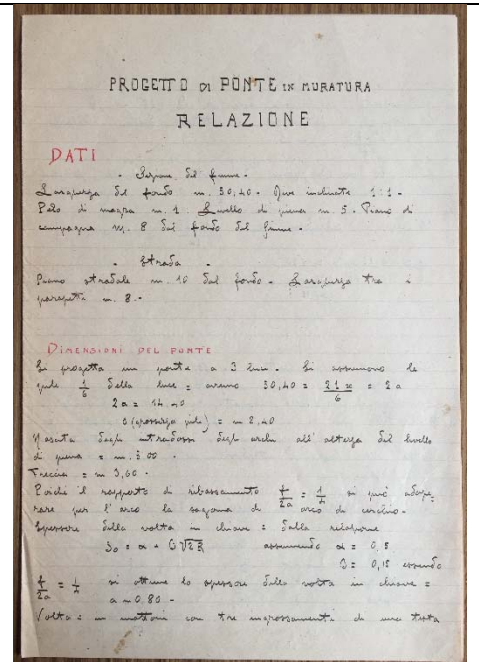 PROGETTO DI PONTE IN MURATURA
RELAZIONE
DATI
- Sezione del fiume -
Larghezza del fondo m. 30,40 - Rive inclinate 1:1 -
Pelo di magra m. 1. Livello di piena m. 5 - Piano di
campagna m. 8 dal fondo del fiume -
- Strada -
Piano stradale m. 10 dal fondo - Larghezza tra i
parapetti m. 8 -
DIMENSIONI DEL PONTE
Si progetta un ponte a 3 luci - Si assumono le
pile 1/6 della luce = avremo 30,40 =
2a = 14.40
(grossezza pile) = m 2.40
Nascita degli intradossi degli archi all'altezza del livello
di piena = m. 5.00 -
Freccia = m 3,60 -
Poichè il rapporto di ribassamento f/2a = 1/4 si può adope,
rare per l'arco la sagoma di arco di cerchio -
Spessore della volta in chiave = dalla relazione
assumendo α = 0,
= 0,18 essendo
f/2a = 1/4 si ottiene lo spessore della volta in chiave =
0,80 -
Volta = in mattoni con tre ingrossamenti di una testa